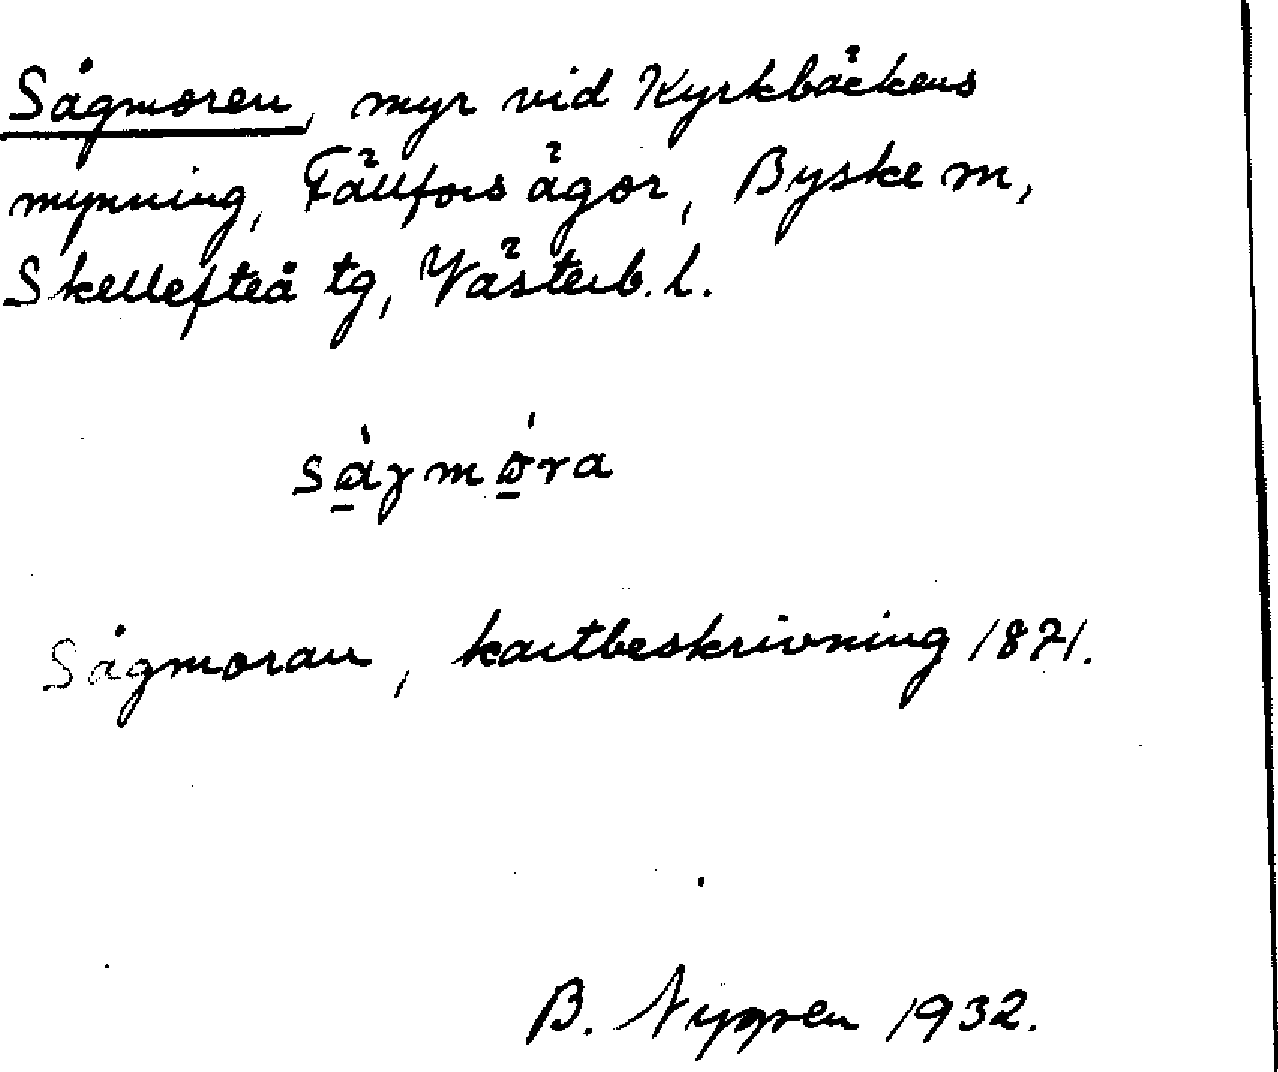 Sågmoren, myr vid Kyrkbäckens
mynning, Fällfors ägor, Byske sn,
Skellefteå tg, Västerb. l.
Sågmoran, kartbeskrivning 1871.
B. Nygren 1932.